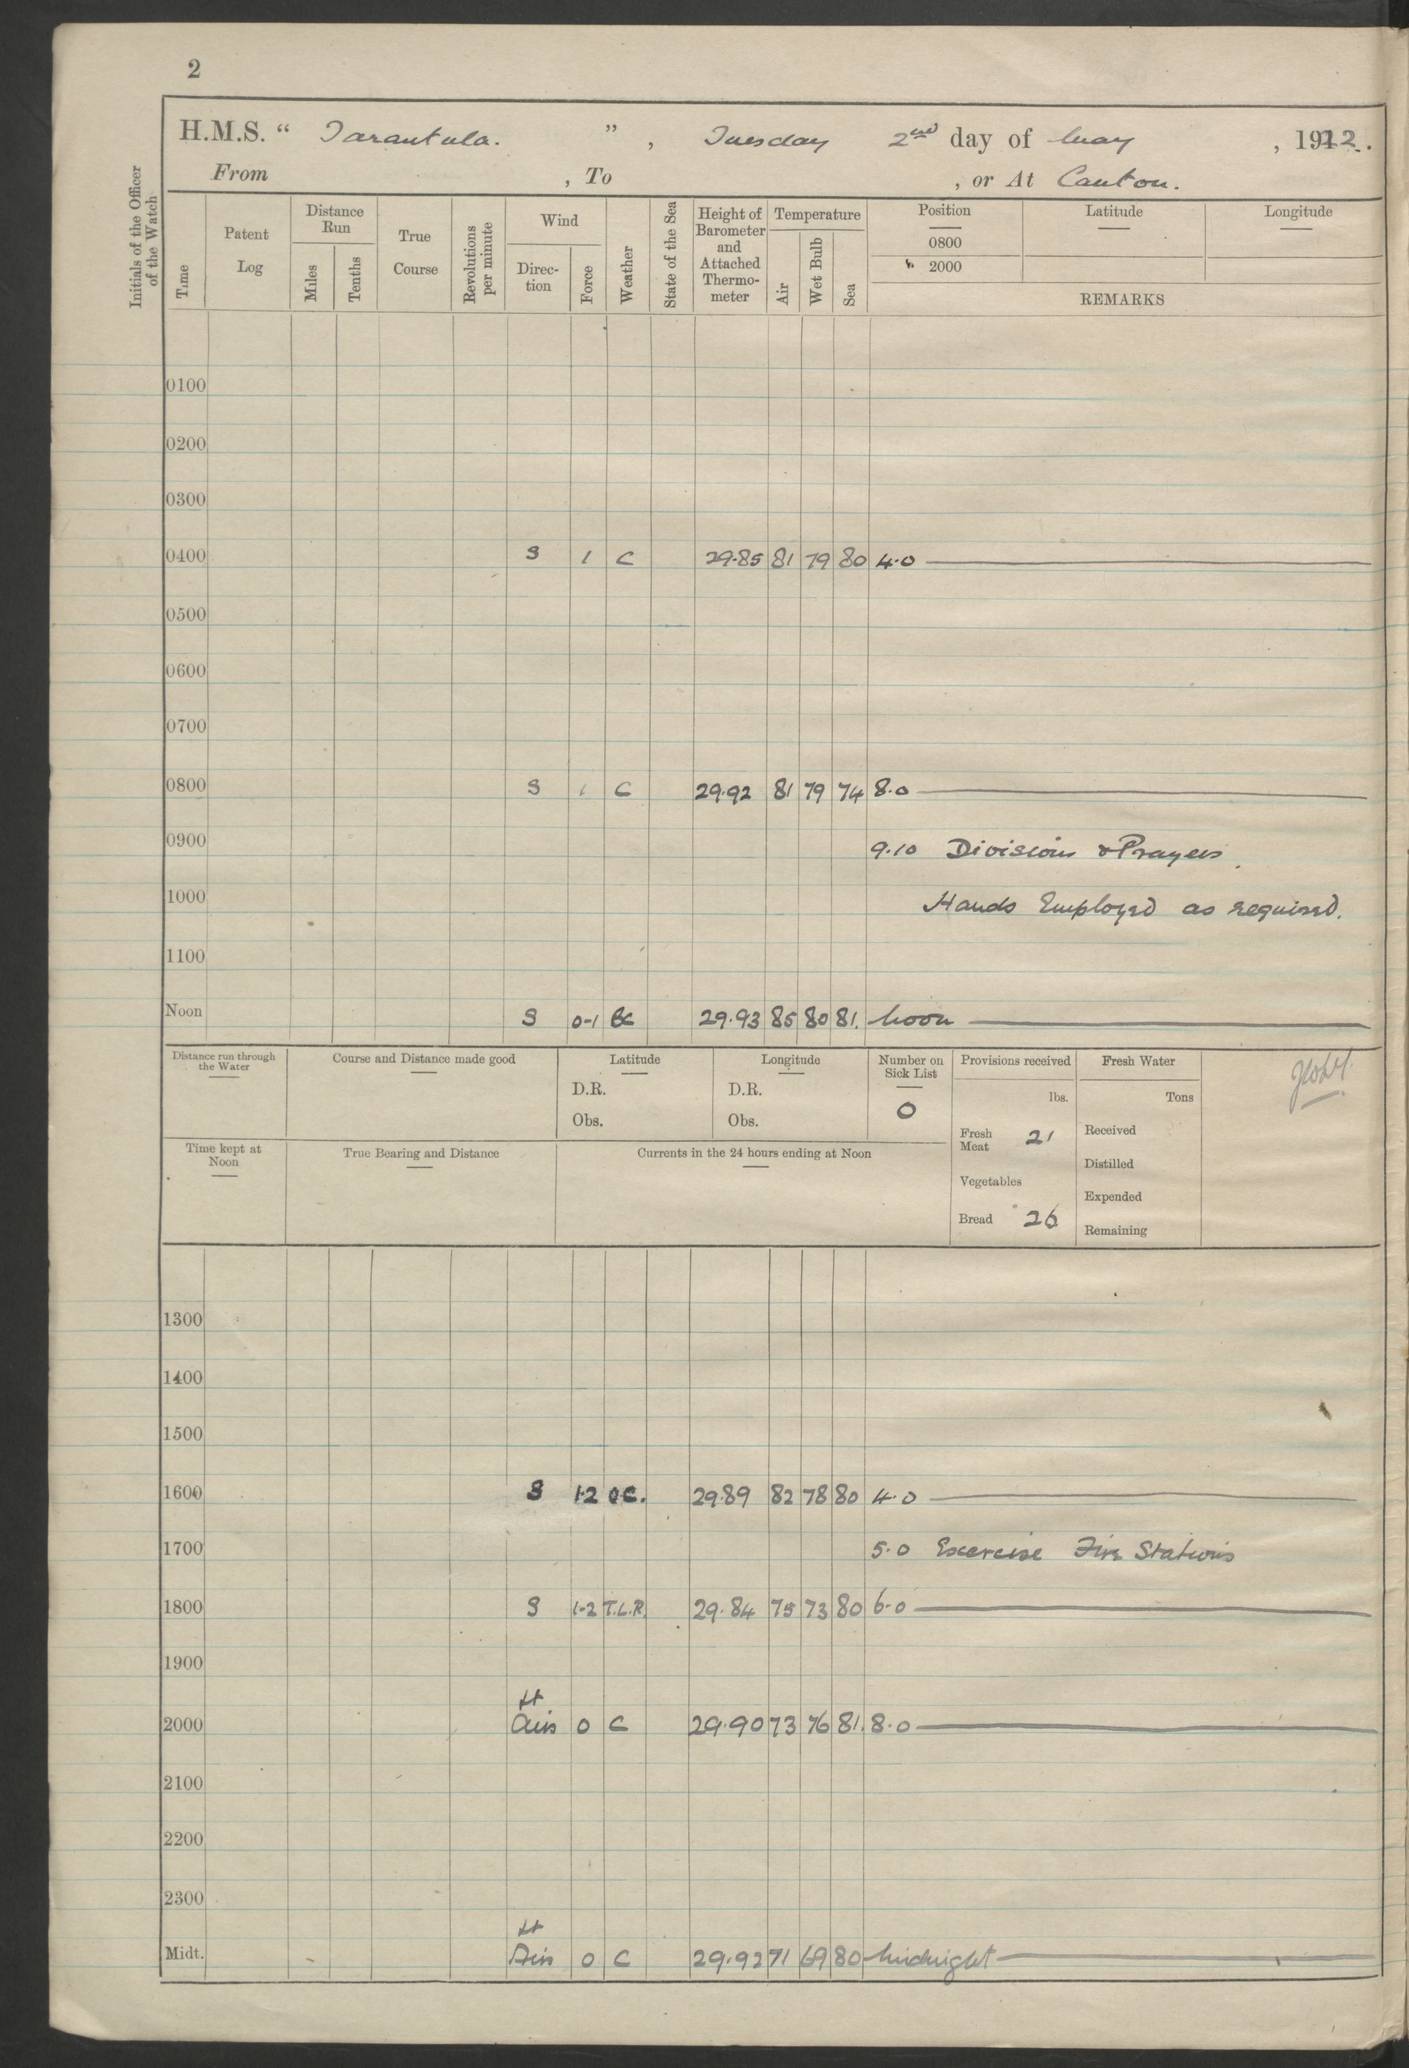 2
H.M.S. “ Tarantula. ” , Tuesday 2nd day of May , 1922.
From , To , or At Canton.
Initials of the Officer of the Watch
Time
Patent Log
Distance Run
Miles
Tenths
True Course
Revolutions per minute
Wind
Direc-tion
Force
Weather
State of the Sea
Height of Barometer and Attached Thermo-meter
Temperature
Air
Wet Bulb
Sea
Position Latitude Longitude
0800
2000
REMARKS
0100
0200
0300
0400 S 1 C 29.85 81 79 80 4.0
0500
0600
0700
0800 S 1 C 29.92 81 79 74 8.0
0900 9.10 Divisions & Prayers.
1000 Hands Employed as required.
1100
Noon S 0-1 BC 29.93 85 80 81. Noon
Distance run through the Water
Course and Distance made good
Latitude
D.R.
Obs.
Longitude
D.R.
Obs.
Number on Sick List
0
Provisions received
lbs.
Fresh Meat 21
Vegetables
Bread 26
Fresh Water
Tons
Received
Distilled
Expended
Remaining
Time kept at Noon
True Bearing and Distance
Currents in the 24 hours ending at Noon
1300
1400
1500
1600 S 1-2 O.C. 29.89 82 78 80 4.0
1700 5.0 Exercise Fire Stations
1800 S 1-2 T.L.R. 29.84 75 73 80 6.0
1900
2000 Lt Airs 0 C 29.90 73 76 81. 8.0
2100
2200
2300
Midt. Lt Airs 0 C 29.92 71 69 80 Midnight